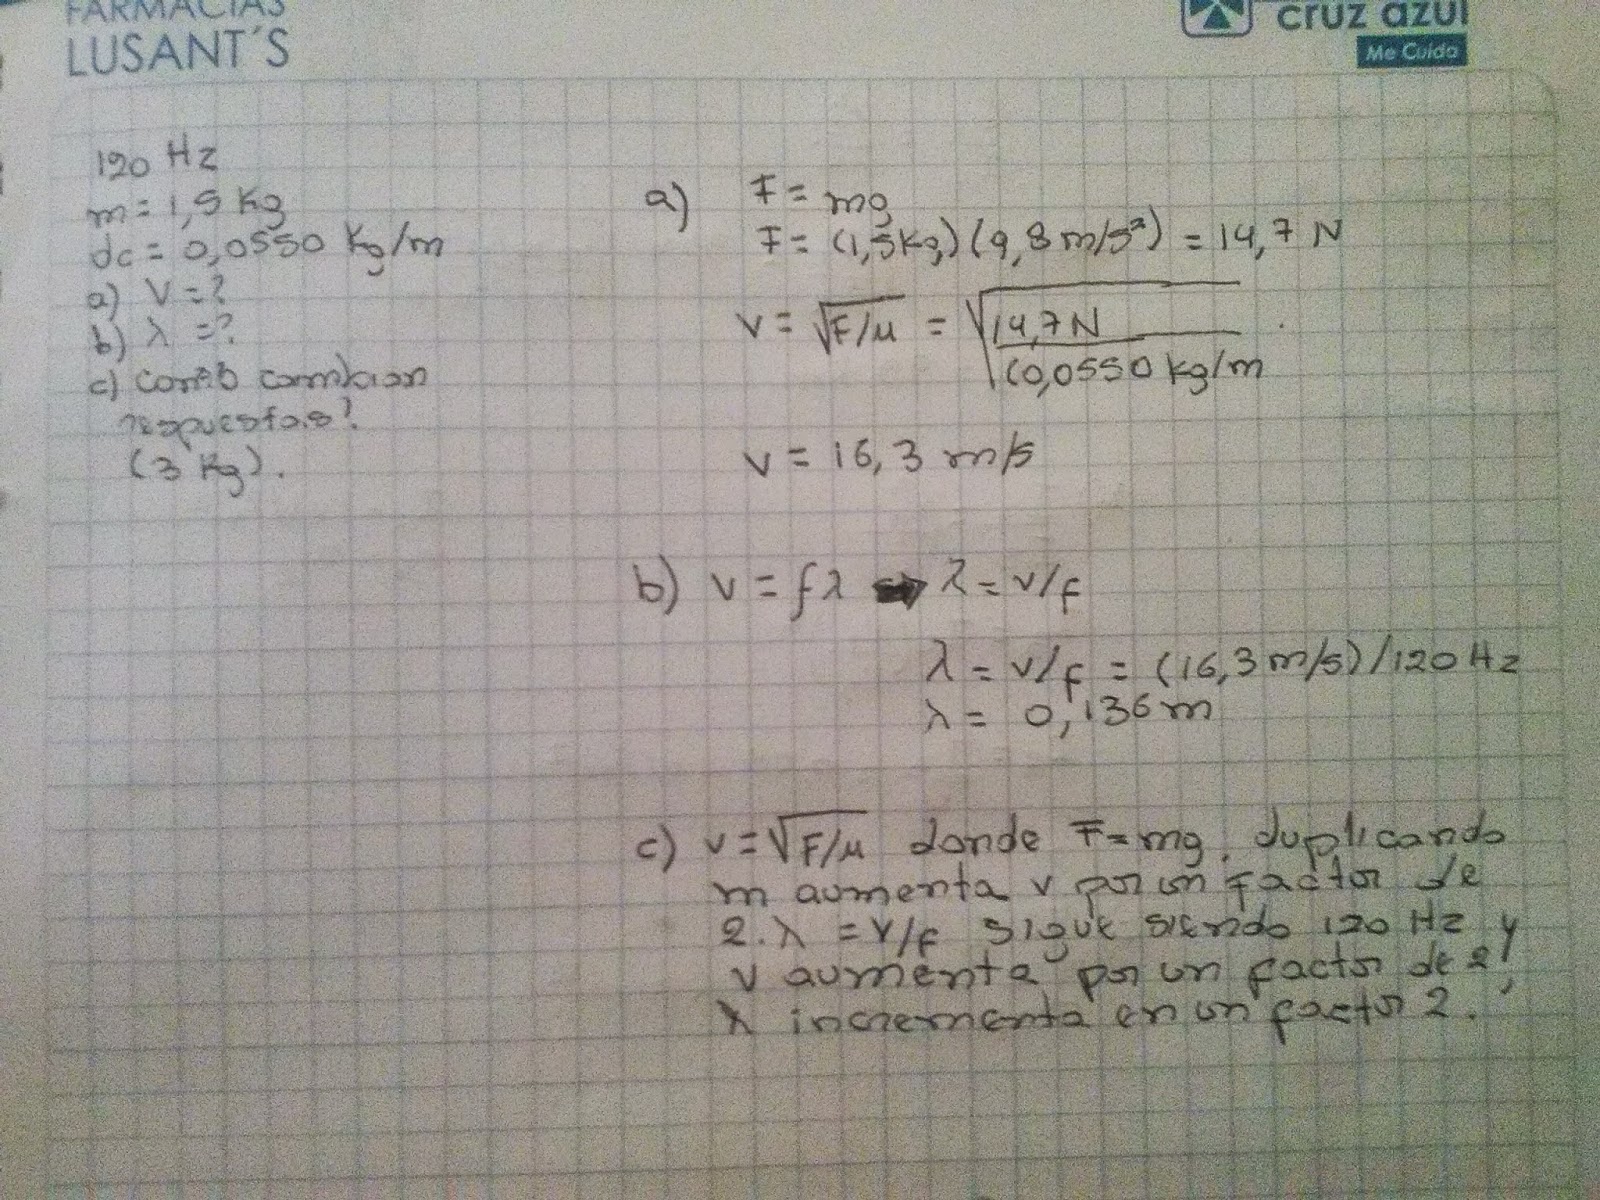 FARMACIAS
LUSANT´S
cruz azul
Me Cuida
120 Hz
m = 1,5 Kg
dc = 0,0550 Kg/m
a) V = ?
b) λ = ?
c) como cambian
respuestas?
(3 Kg).
a) F = mg
F = (1,5Kg)(9,8 m/s²) = 14,7 N
v = √F/μ = √14,7 N
(0,0550 kg/m
v = 16,3 m/s
b) v = fλ ➡ λ = v/f
λ = v/f = (16,3 m/s)/120 Hz
λ = 0,136 m
c) v = √F/μ donde F = mg. duplicando
m aumenta v por un factor de
2. λ = v/f sigue siendo 120 Hz y
v aumenta por un factor de 2,
λ incrementa en un factor 2.